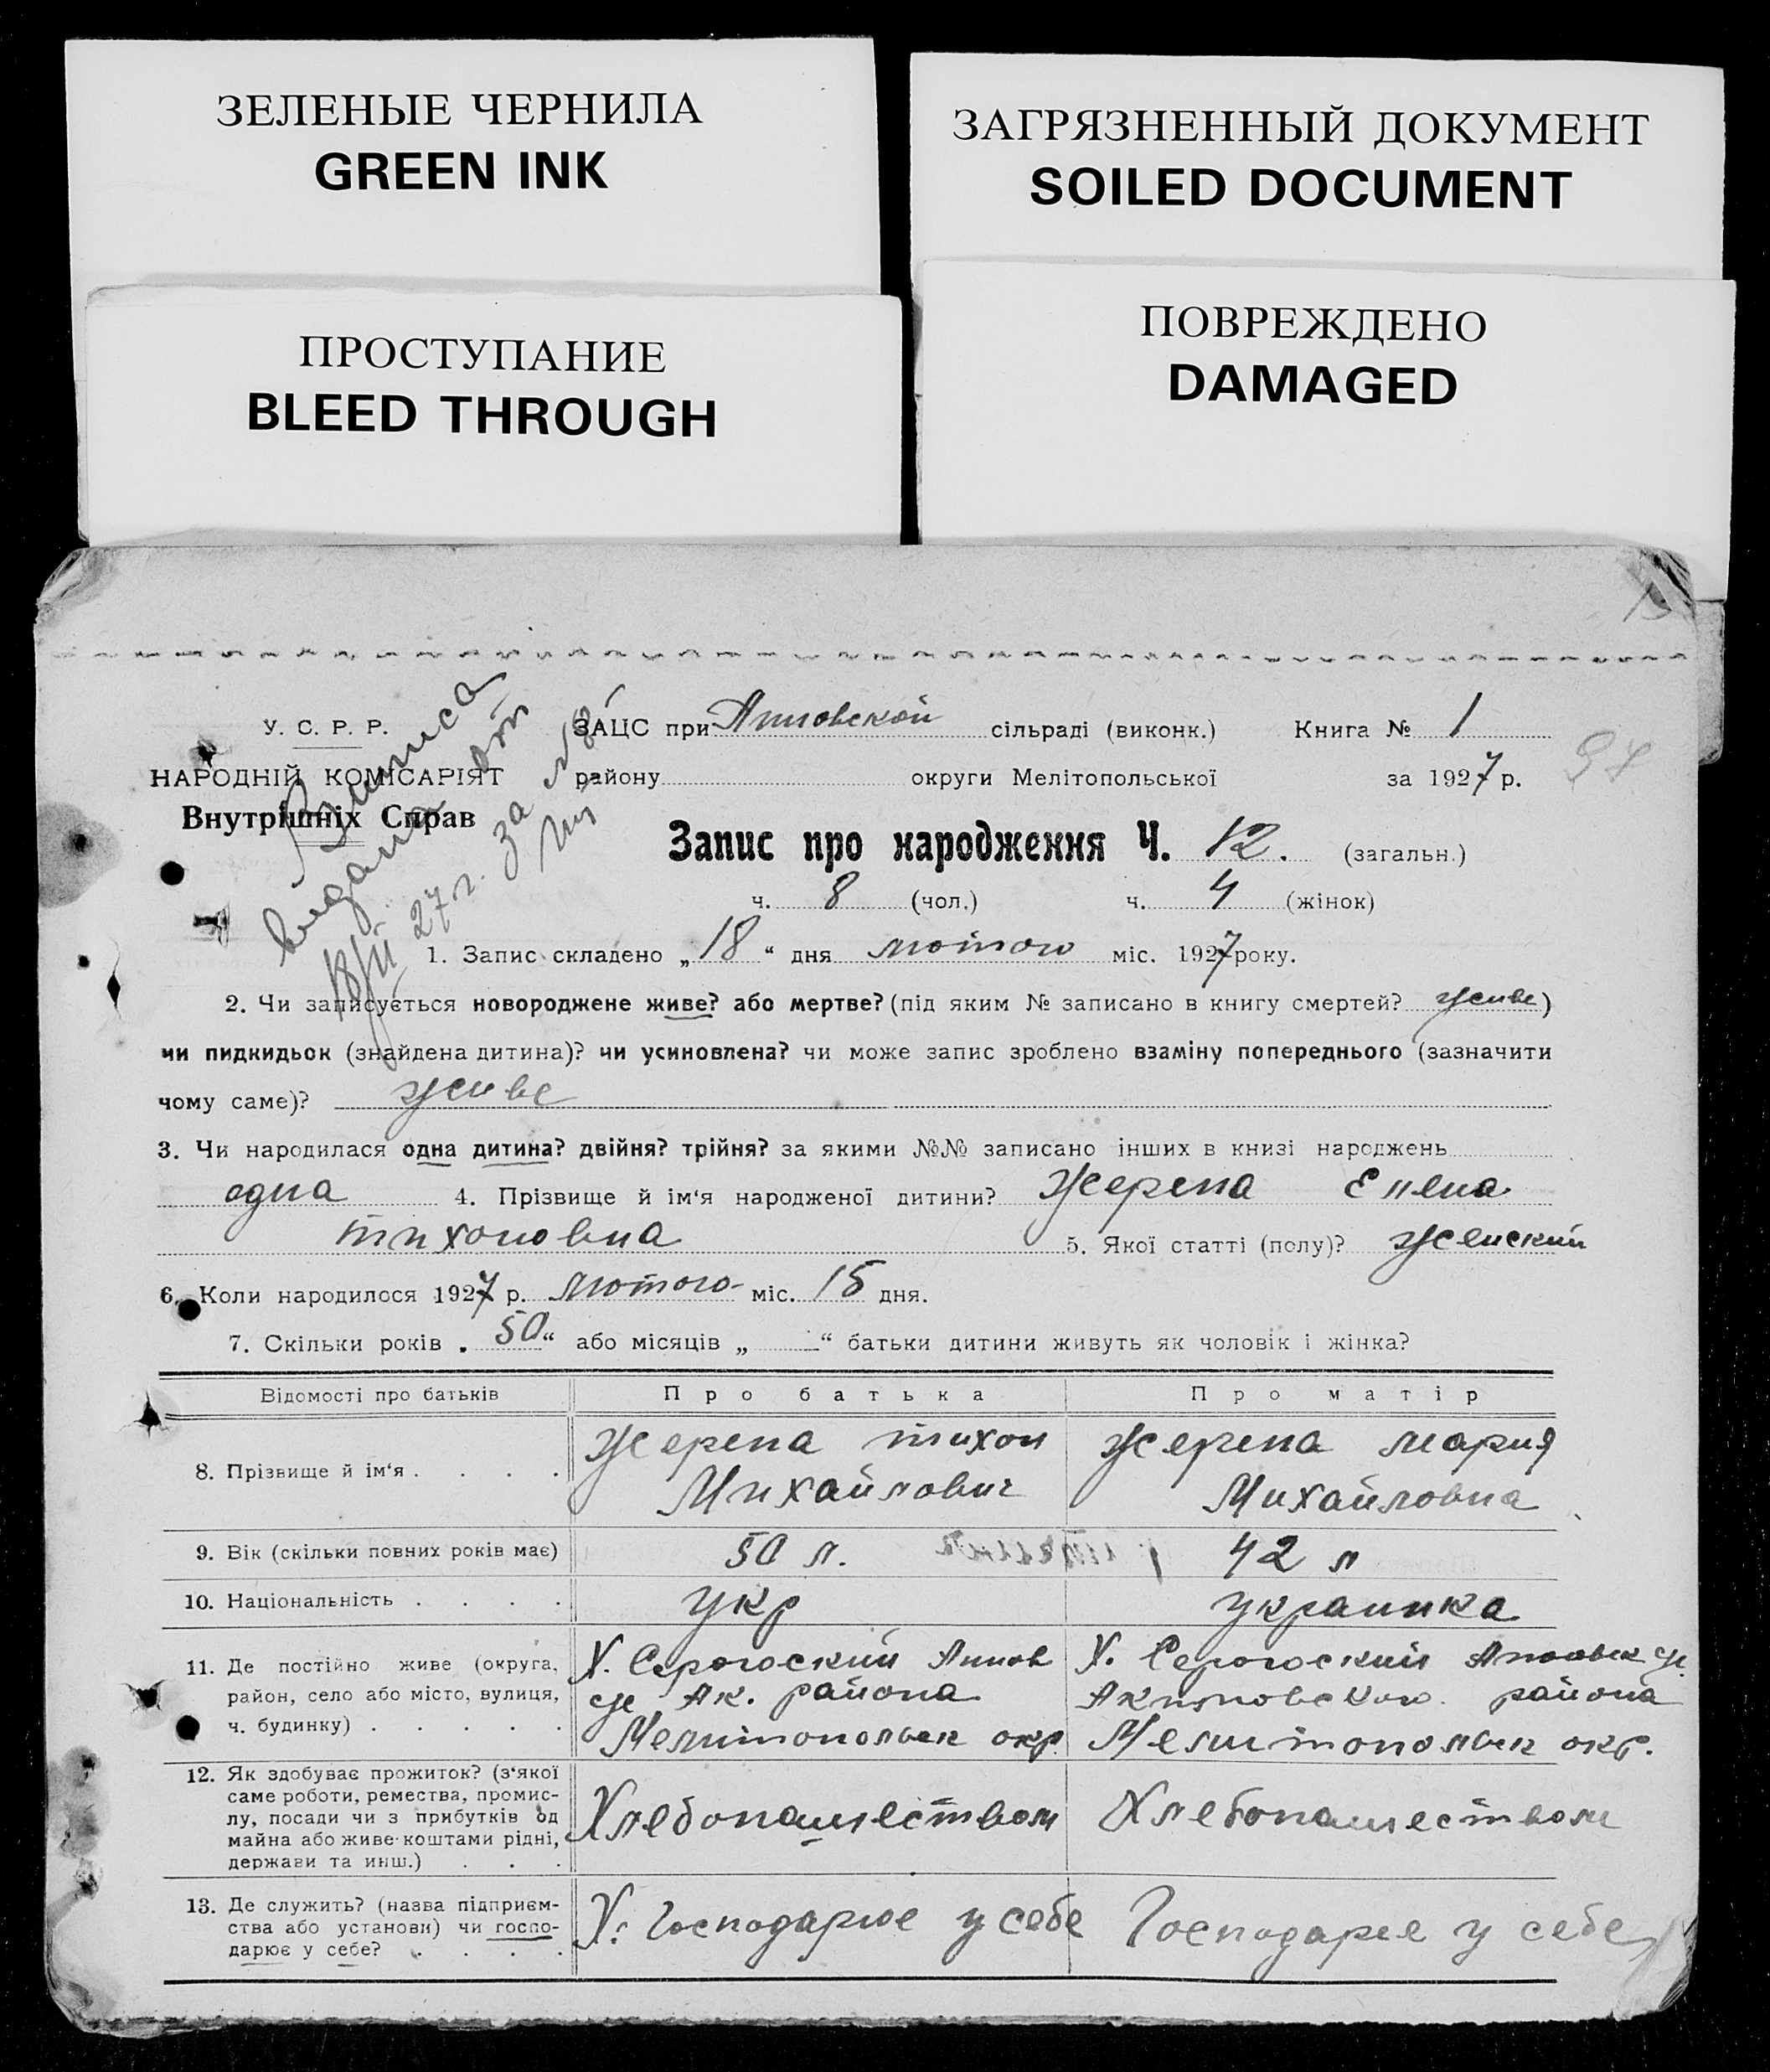 ЗЕЛЕНЫЕ ЧЕРНИЛА
GREEN INK
ЗАГРЯЗНЕННЫЙ ДОКУМЕНТ
SOILED DOCUMENT
ПРОСТУПАНИЕ
BLEED THROUGH
ПОВРЕЖДЕНО
DAMAGED
У. С. Р. Р.
НАРОДНІЙ КОМІСАРІЯТ
Внутрішніх Справ
Выписа
выдана
27 г. за №
ЗАЦС при Анновской сільраді (виконк.) Книга № 1
району округи Мелітопольської за 1927 р.
97
Запис про народження Ч. 12. (загальн.)
ч. 8 (чол.) ч. 4 (жінок)
1. Запис складено „18“ дня лютого міс. 1927 року.
2. Чи записується новороджене живе? або мертве? (під яким № записано в книгу смертей? живе)
чи пидкидьок (знайдена дитина)? чи усиновлена? чи може запис зроблено взаміну попереднього (зазначити
чому саме)? живе
3. Чи народилася одна дитина? двійня? трійня? за якими №№ записано інших в книзі народжень
одна 4. Прізвище й ім‘я народженої дитини? Жерепа Елена
тихоновна 5. Якої статті (полу)? женский
6. Коли народилося 1927 р. лютого міс. 15 дня.
7. Скільки років „50“ або місяців „ “ батьки дитини живуть як чоловік і жінка?
Відомості про батьків Про батька Про матір
8. Прізвище й ім‘я . . . . Жерепа тихон Жерепа мария
Михайлович Михайловна
9. Вік (скільки повних років має) 50 л. 42 л
10. Національність . . . . укр украинка
11. Де постійно живе (округа, Х. Серогоский Аннов Х. Серогоский Анновск
район, село або місто, вулиця, с Ак. района Акимовского района
ч. будинку) . . . . . Мелитопольск окр. Мелитопольск окр.
12. Як здобуває прожиток? (з‘якої
саме роботи, ремества, промис-
лу, посади чи з прибутків од
майна або живе коштами рідні,
держави та инш.) . . .
Хлебопашеством Хлебопашеством
13. Де служить? (назва підприєм-
ства або установи) чи госпо-
дарює у себе? . . . .
Х. Господарює у себе Господарує у себе